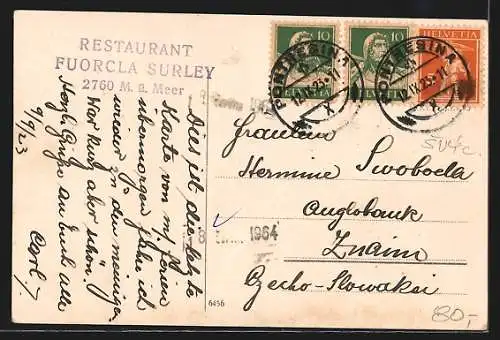 RESTAURANT
FUORCLA SURLEY
2760 M. ü. Meer
Dies ist die letzte
Karte von m. Ferien
übermorgen fahre ich
wieder in den
War kurz aber schön.
Herzl. Grüsse an Euch alle
9/9/23 Carl
10 10 HELVETIA
HELVETIA HELVETIA
PONTRESINA
PONTRESINA
Fräulein
Hermine Swoboda
Anglobank
Znaim
Czecho-Slowakei
1964
6456
80,-